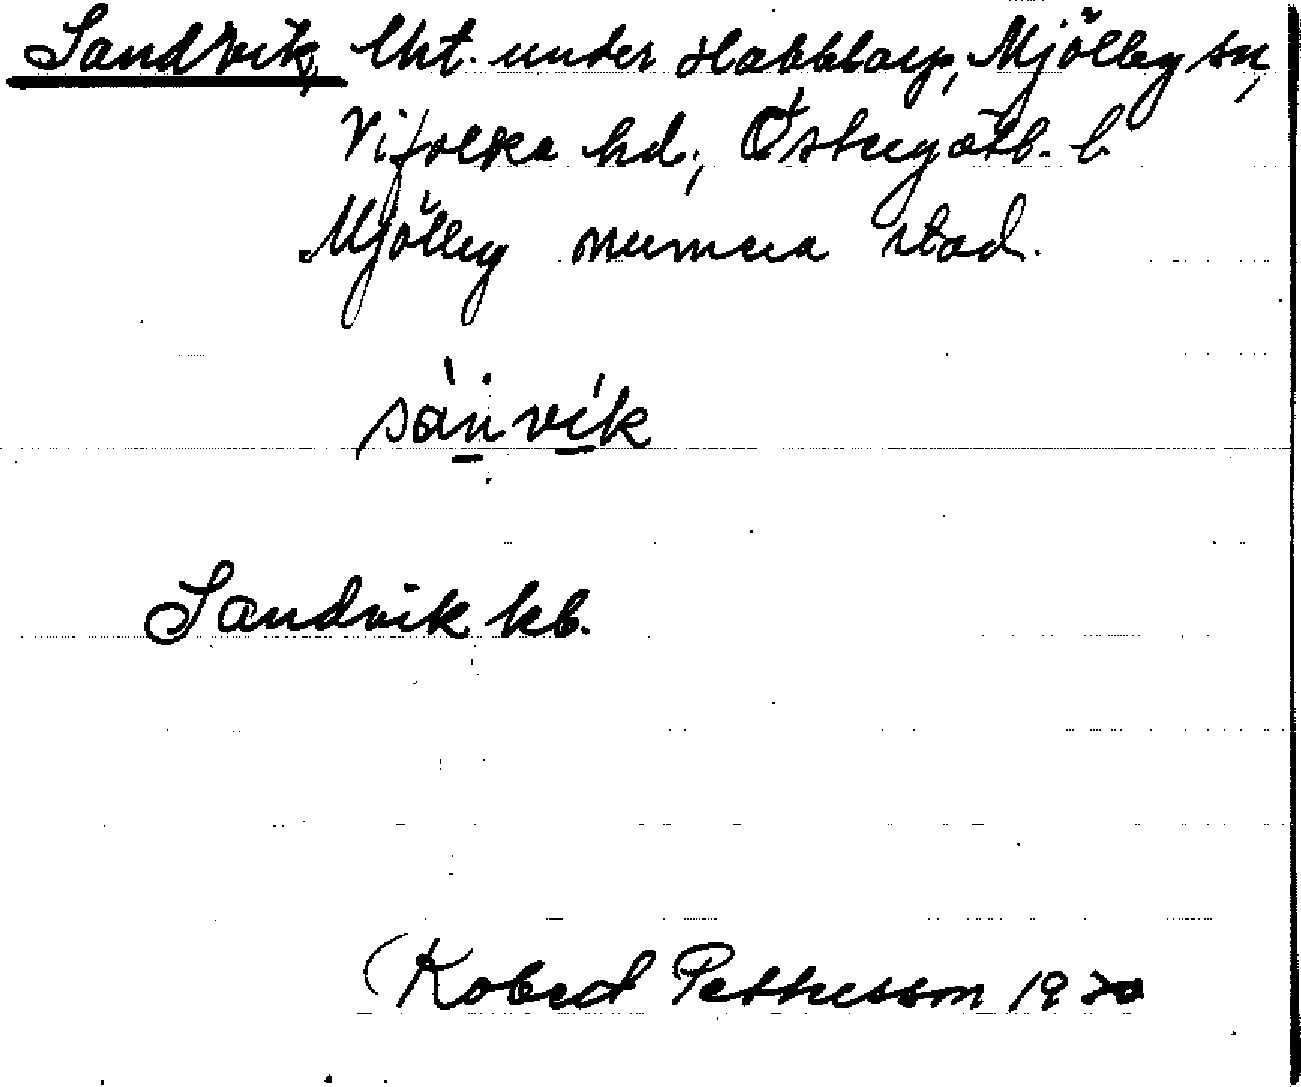 Sandvik, lht. under Habblarp, Mjölby sn,
Vifolka hd, Östergötl. l.
Mjölby numera stad.
sànvík
Sandvik kb.
(Robert Pettersson 1930